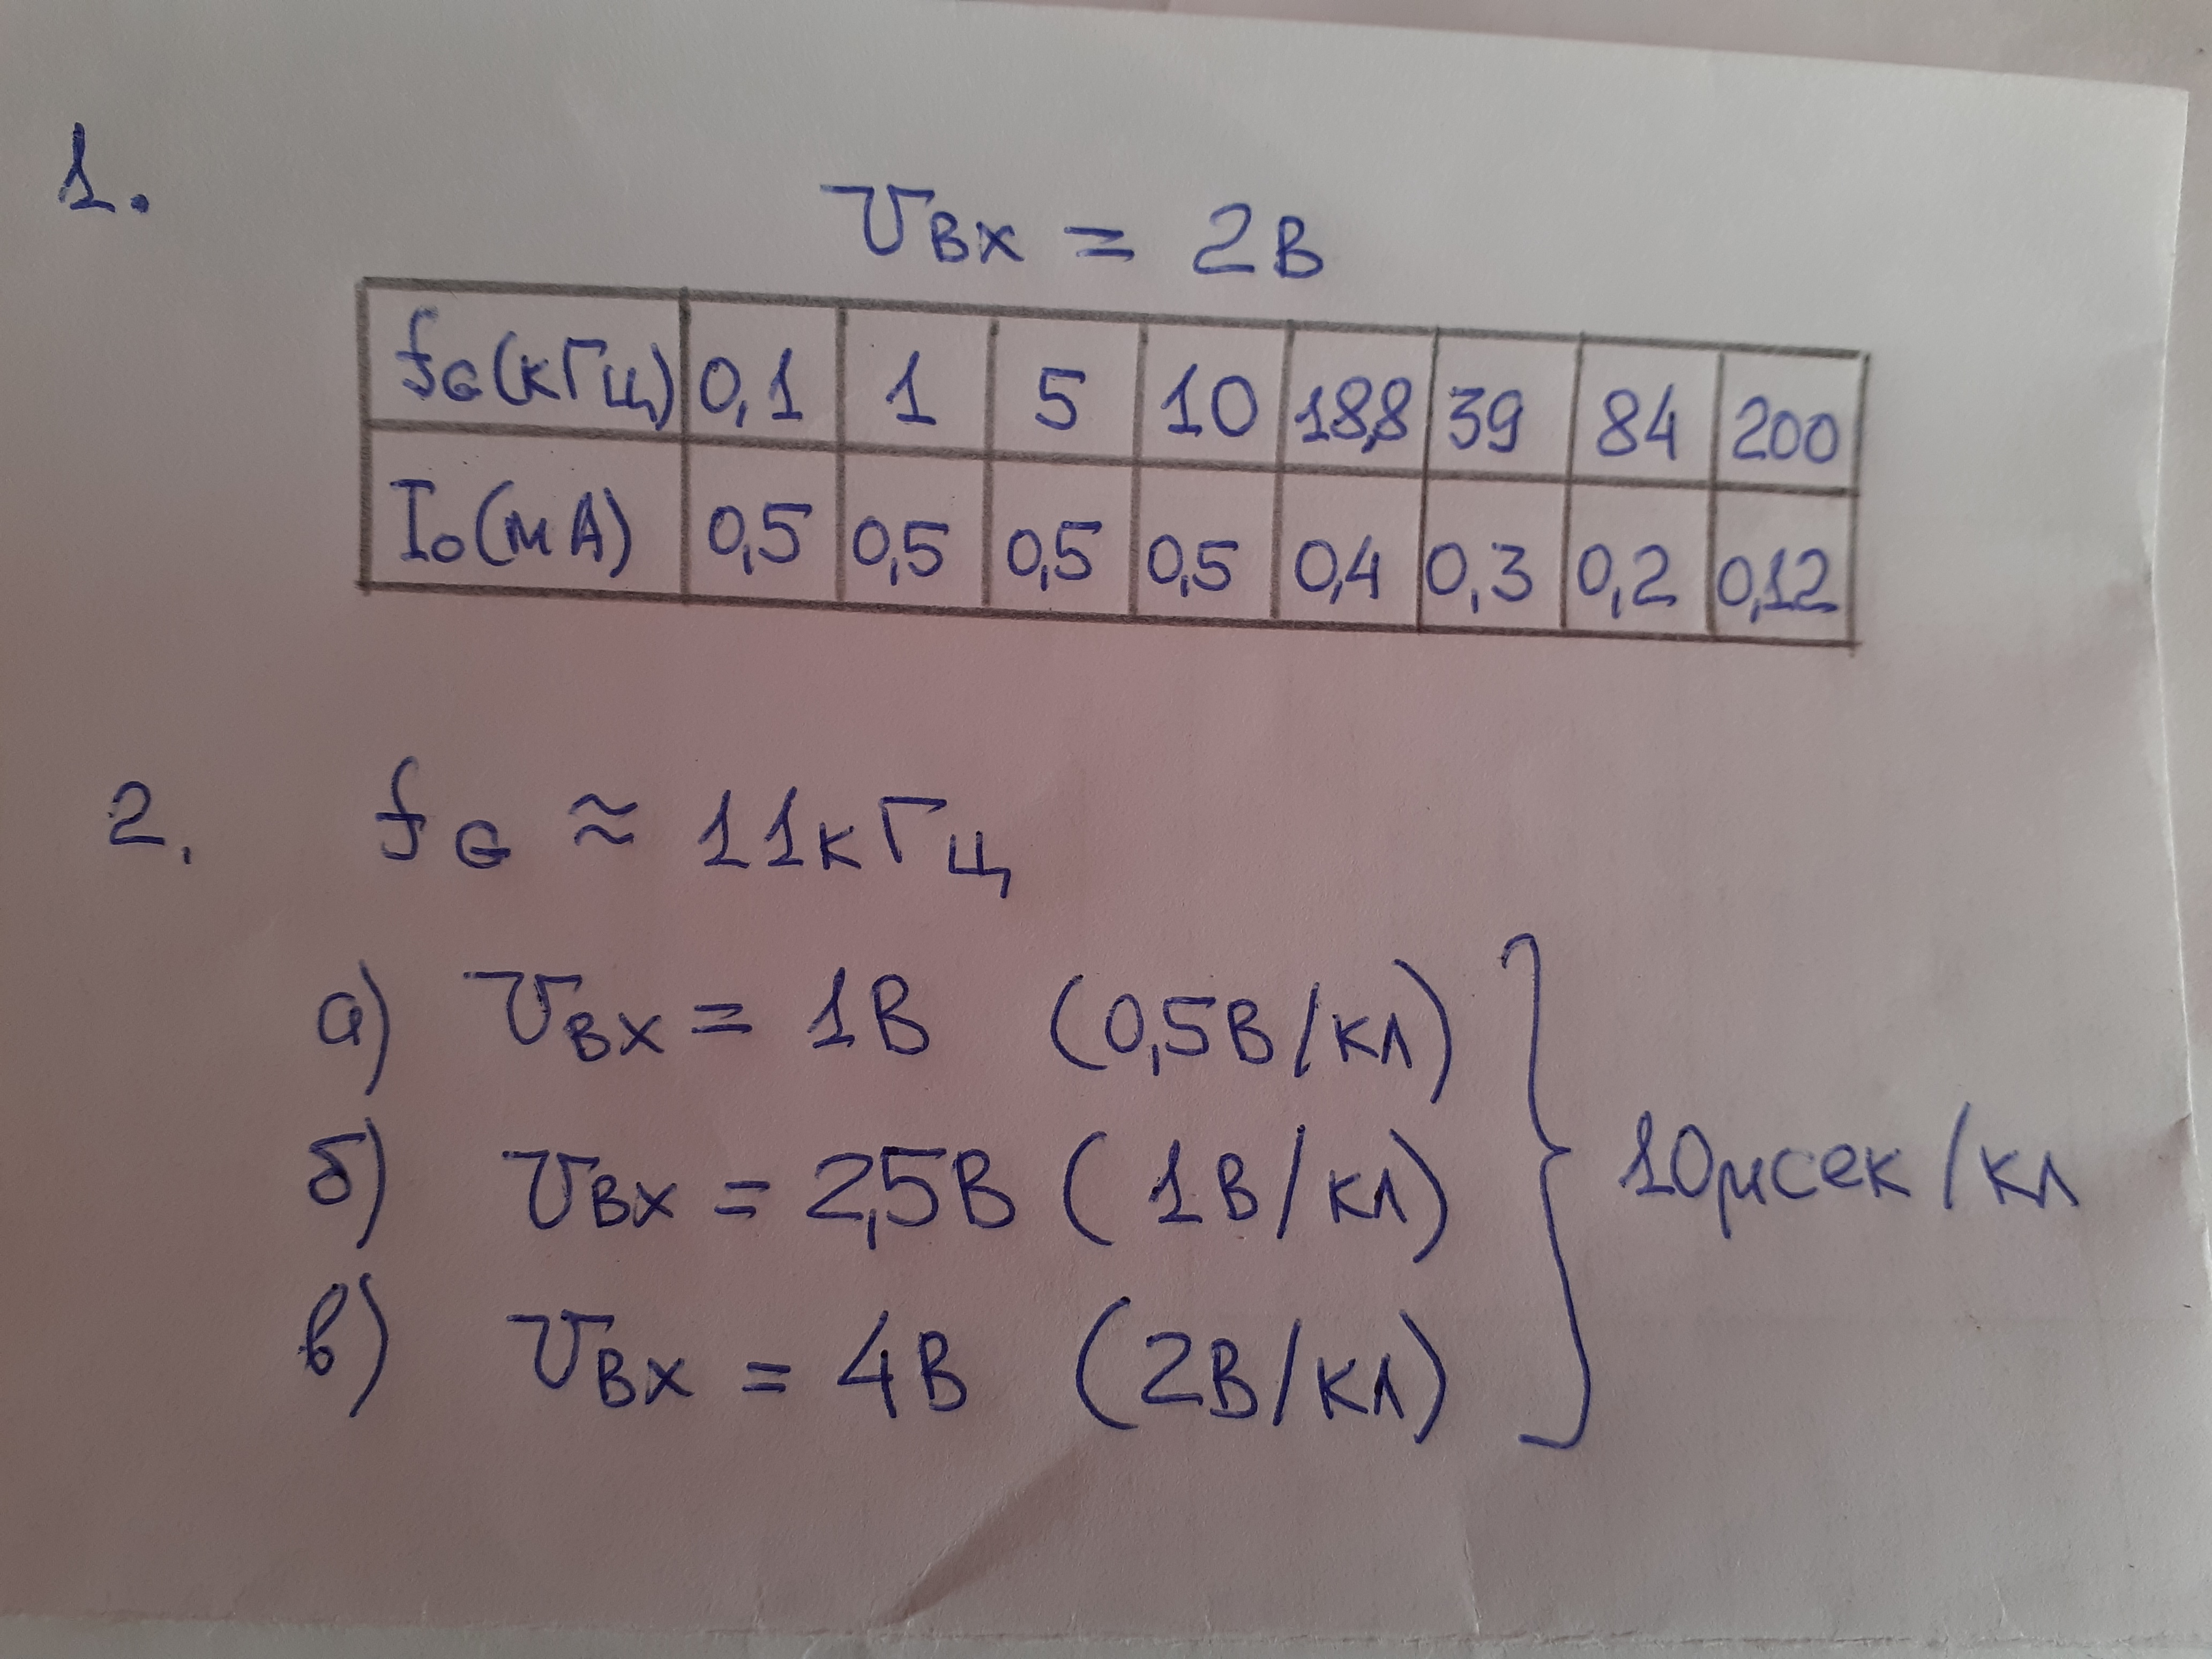 1.
Uвх = 2В
fG(кГц) 0,1 1 5 10 18,8 39 84 200
I0(мА) 0,5 0,5 0,5 0,5 0,4 0,3 0,2 0,12
2. fG ≈ 11кГц
а) Uвх = 1В (0,5В/кл)
б) Uвх = 2,5В (1В/кл) } 10μсек/кл
в) Uвх = 4В (2В/кл)